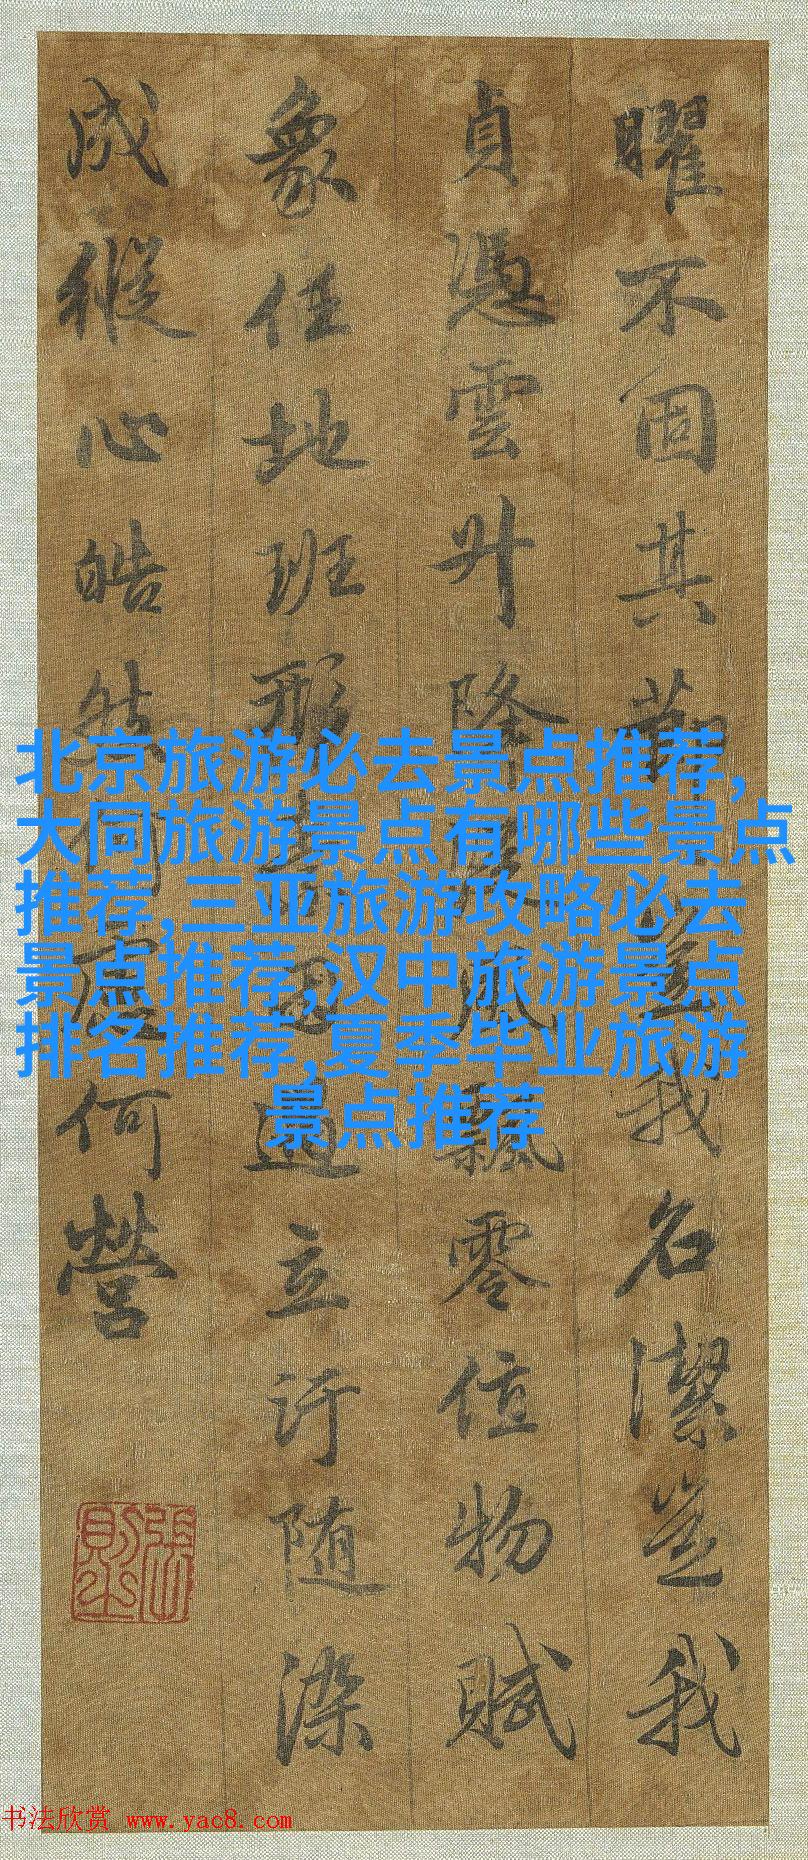 曜不固其節豈我名潔豈我
貞憑雲升降從風飄零值物賦
象任地班形素因遇立汙随染
成縱心皓然何慮何營
張則之
北京旅游必去景点推荐,
大同旅游景点有哪些景点
推荐,三亚旅游攻略必去
景点推荐,汉中旅游景点
排名推荐,夏季毕业旅游
景点推荐
书法欣赏 www.yac8.com